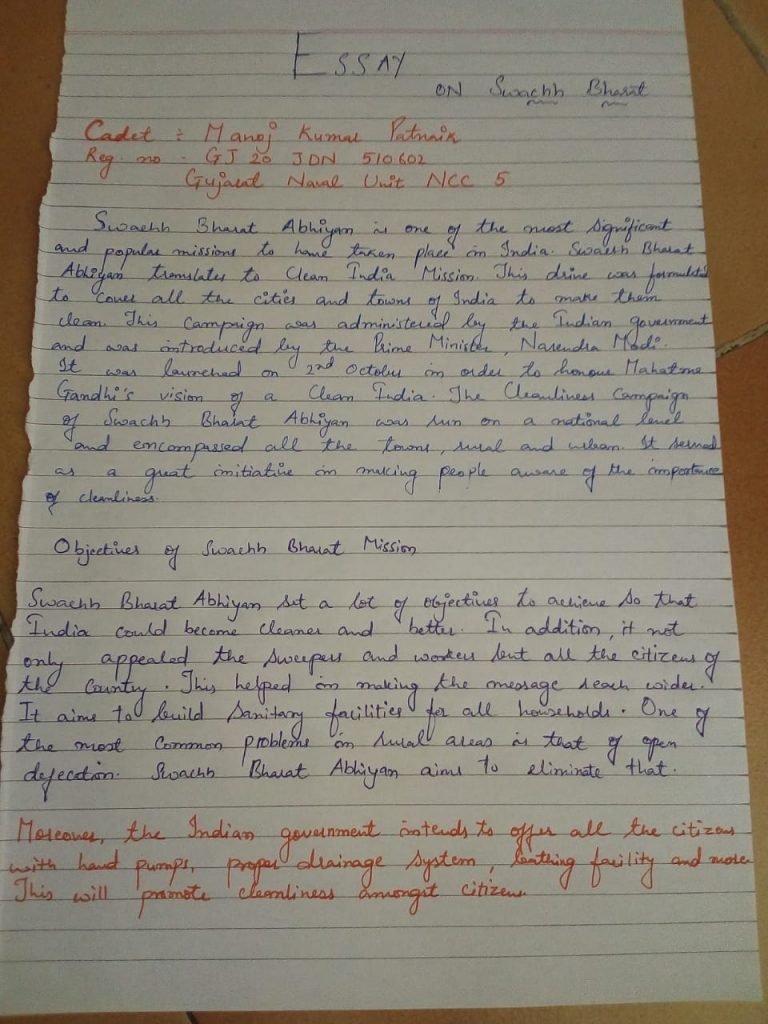 ESSAY
ON Swachh Bharat
Cadet : Manoj Kumar Patnaik
Reg. no - GJ 20 JDN 510602
Gujarat Naval Unit NCC 5
Swachh Bharat Abhiyan is one of the most significant
and popular missions to have taken place in India. Swachh Bharat
Abhiyan translates to Clean India Mission. This drive was formulated
to cover all the cities and towns of India to make them
clean. This campaign was administered by the Indian government
and was introduced by the Prime Minister, Narendra Modi.
It was launched on 2nd October in order to honour Mahatma
Gandhi's vision of a Clean India. The Cleanliness Campaign
of Swachh Bharat Abhiyan was run on a national level
and encompassed all the towns, rural and urban. It served
as a great initiative in making people aware of the importance
of cleanliness.
Objectives of Swachh Bharat Mission
Swachh Bharat Abhiyan set a lot of objectives to achieve so that
India could become cleaner and better. In addition, it not
only appealed the sweepers and workers but all the citizens of
the country. This helped in making the message reach wider.
It aims to build sanitary facilities for all households. One of
the most common problems in rural areas is that of open
defecation. Swachh Bharat Abhiyan aims to eliminate that.
Moreover, the Indian government intends to offer all the citizens
with hand pumps, proper drainage system, bathing facility and more.
This will promote cleanliness amongst citizens.